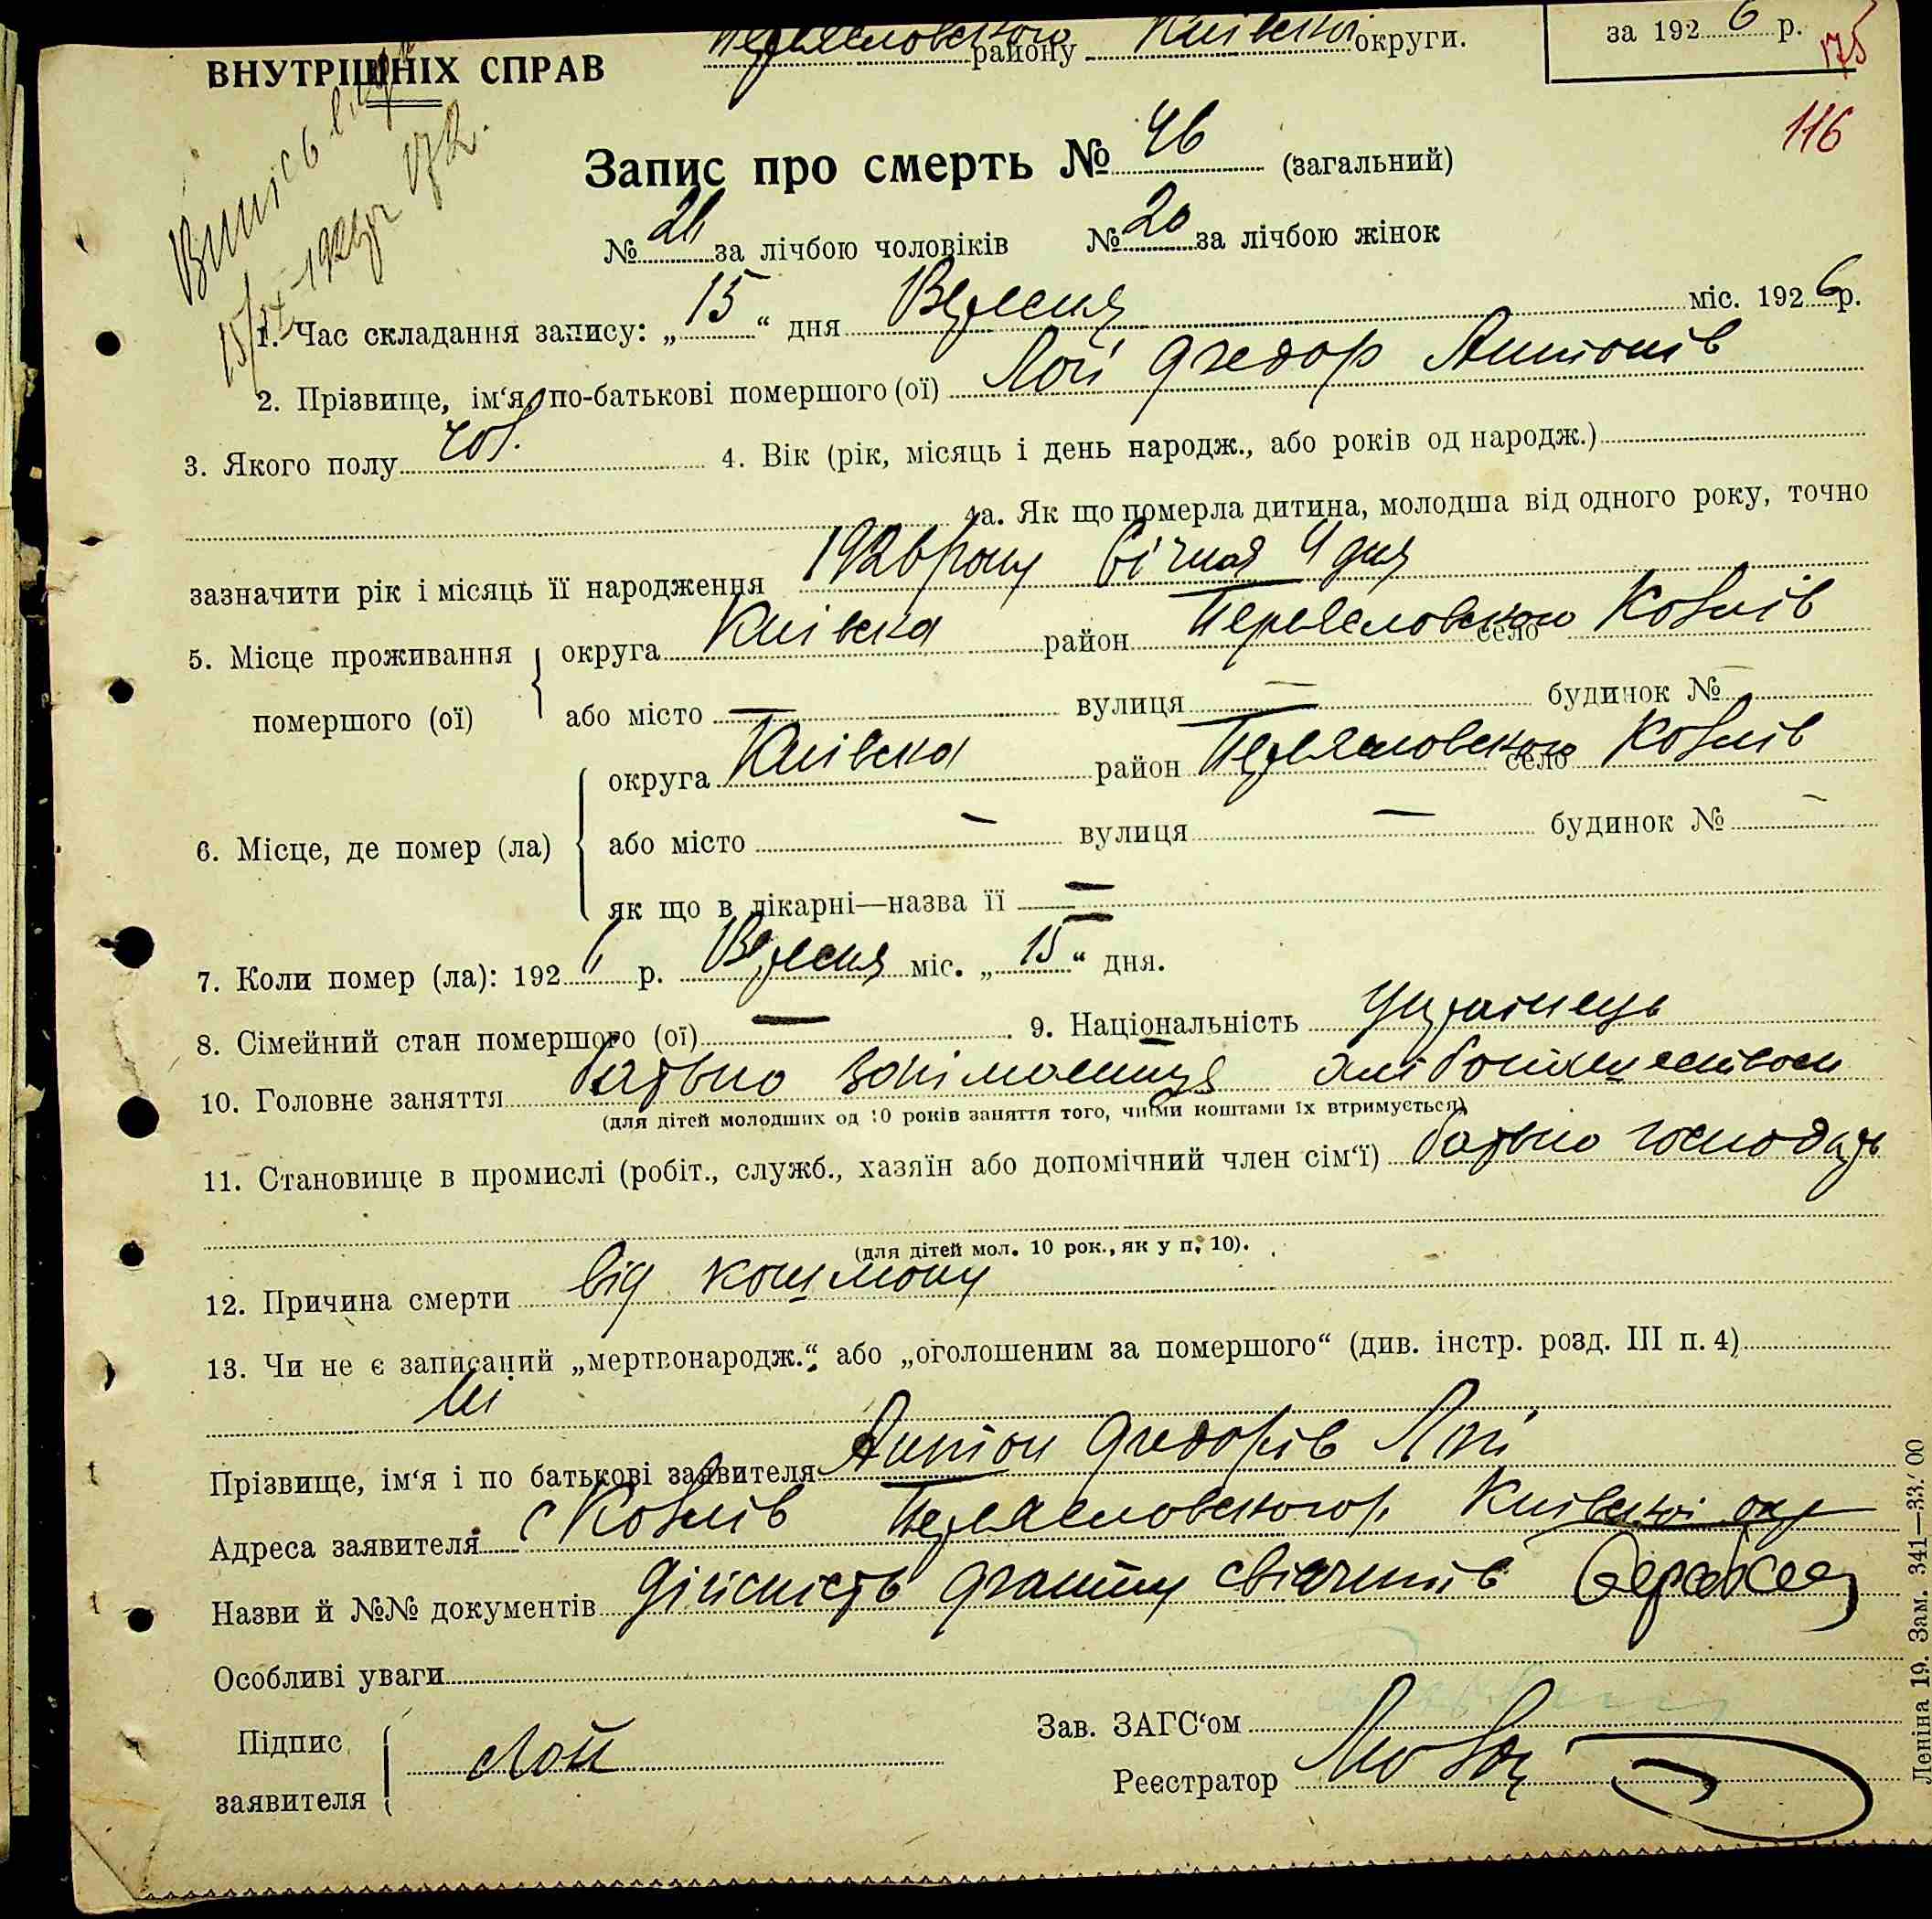 Переяславского району Київської округи.
за 1926 р.
175
ВНУТРІШНІХ СПРАВ
116
Запис про смерть № 46 (загальний)
№ 26 за лічбою чоловіків № 20 за лічбою жінок
1. Час складання запису: „15“ дня Вересня міс. 1926 р.
2. Прізвище, ім‘я, по-батькові помершого (ої) Лой Федор Антонів
3. Якого полу чол. 4. Вік (рік, місяць і день народж., або років од народж.)
4а. Як що померла дитина, молодша від одного року, точно
зазначити рік і місяць її народження 1926 року Січная 4 дня
5. Місце проживання помершого (ої) округа Київска район Переяславского село Козлів
або місто — вулиця — будинок № —
6. Місце, де помер (ла) округа Київска район Переяславского село Козлів
або місто — вулиця — будинок № —
як що в лікарні—назва її —
7. Коли помер (ла): 1926 р. Вересня міс. „15“ дня.
8. Сімейний стан помершого (ої) — 9. Національність Українець
10. Головне заняття батько занімаеться
(для дітей молодших од 10 років заняття того, чиїми коштами їх втримується)
11. Становище в промислі (робіт., служб., хазяїн або допомічний член сім‘ї) батько господарь
(для дітей мол. 10 рок., як у п. 10).
12. Причина смерти від
13. Чи не є записаний „мертвонародж.“, або „оголошеним за помершого“ (див. інстр. розд. III п. 4)
Ні
Прізвище, ім‘я і по батькові заявителя Антон Федорів Лой
Адреса заявителя с Козлів Переяславского р. Київскої окр
Назви й №№ документів Дійсність факту свідчив
Особливі уваги
Підпис заявителя Лой
Зав. ЗАГС‘ом
Реєстратор
Леніна 19. Зам. 341—33.000